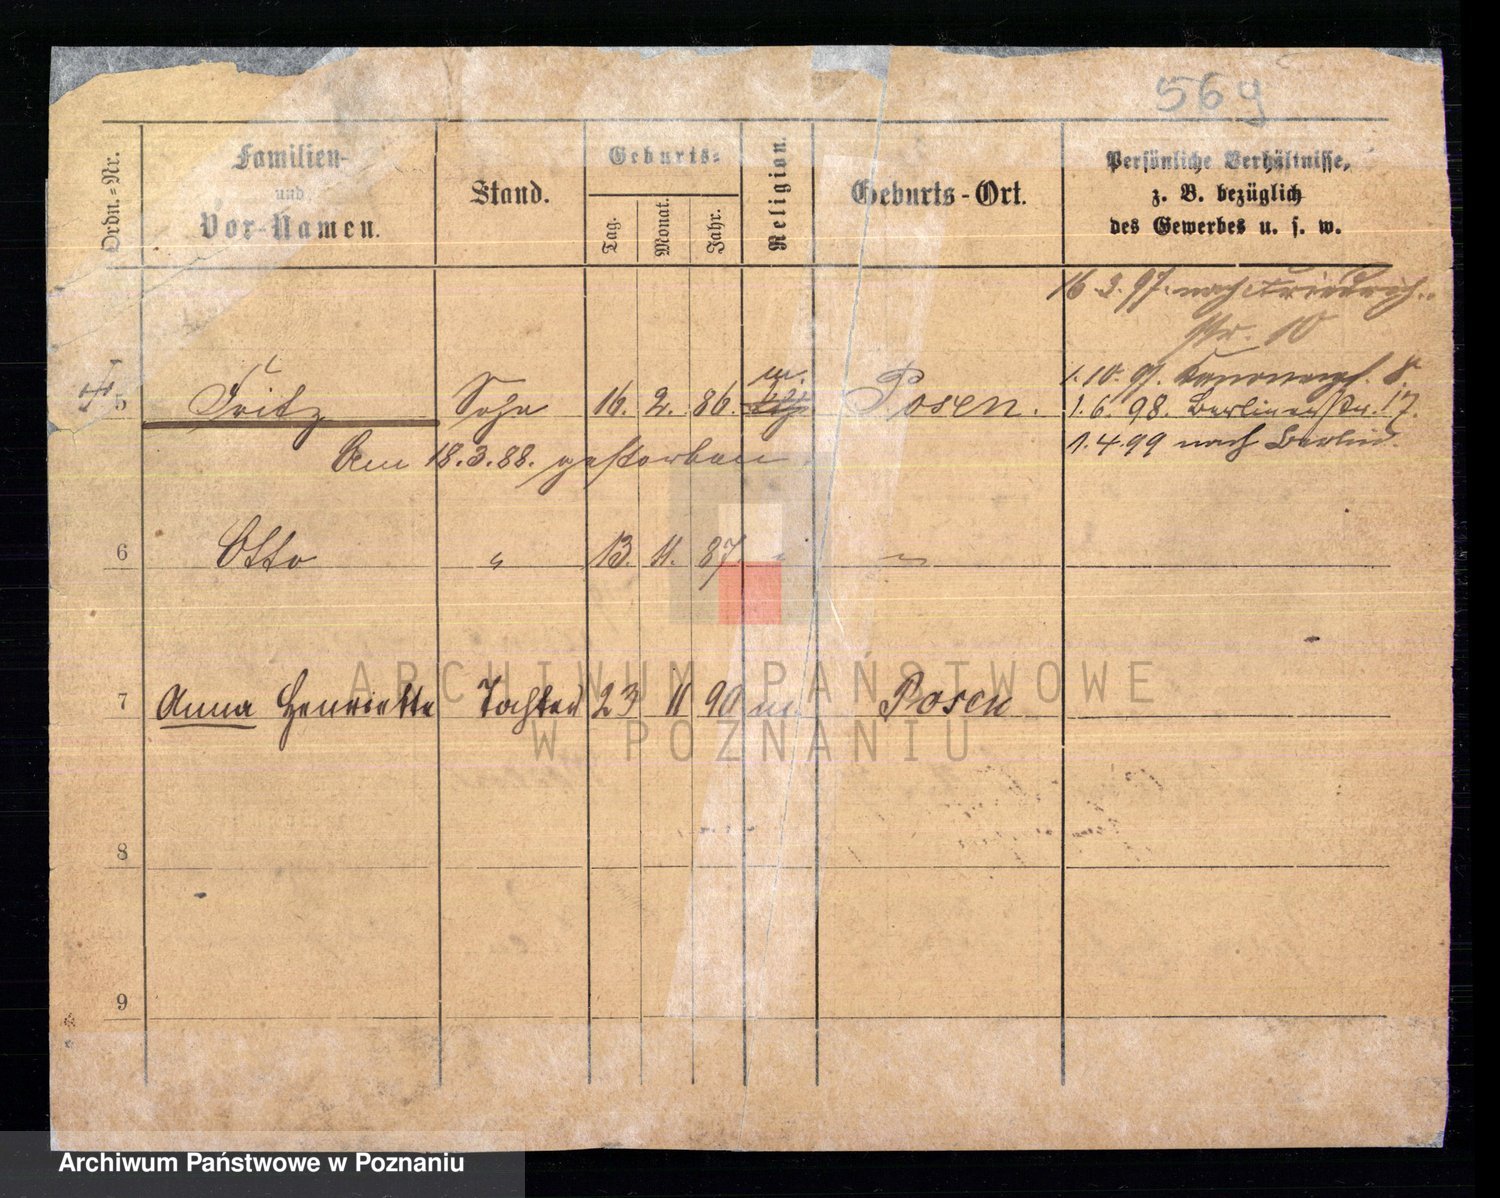 569
Ordn.-Nr.
Familien-
und
Vor-Namen.
Stand.
Geburts-
Tag.
Monat.
Jahr.
Religion.
Geburts-Ort.
Persönliche Verhältnisse,
z. B. bezüglich
des Gewerbes u. s. w.
16. 3. 97. nach Friedrich-
str. 10
1. 10. 97. 8.
m.
5 Fritz Sohn 16. 2. 86. Posen. 1. 6. 98. Berlinerstr. 17.
Am 18. 3. 88. gestorben 1. 4. 99 nach Berlin.
6 Otto " 13. 11. 87. " "
7 Anna Henriette Tochter 23 11 90 m Posen
8
9
ARCHIWUM PAŃSTWOWE
W POZNANIU
Archiwum Państwowe w Poznaniu